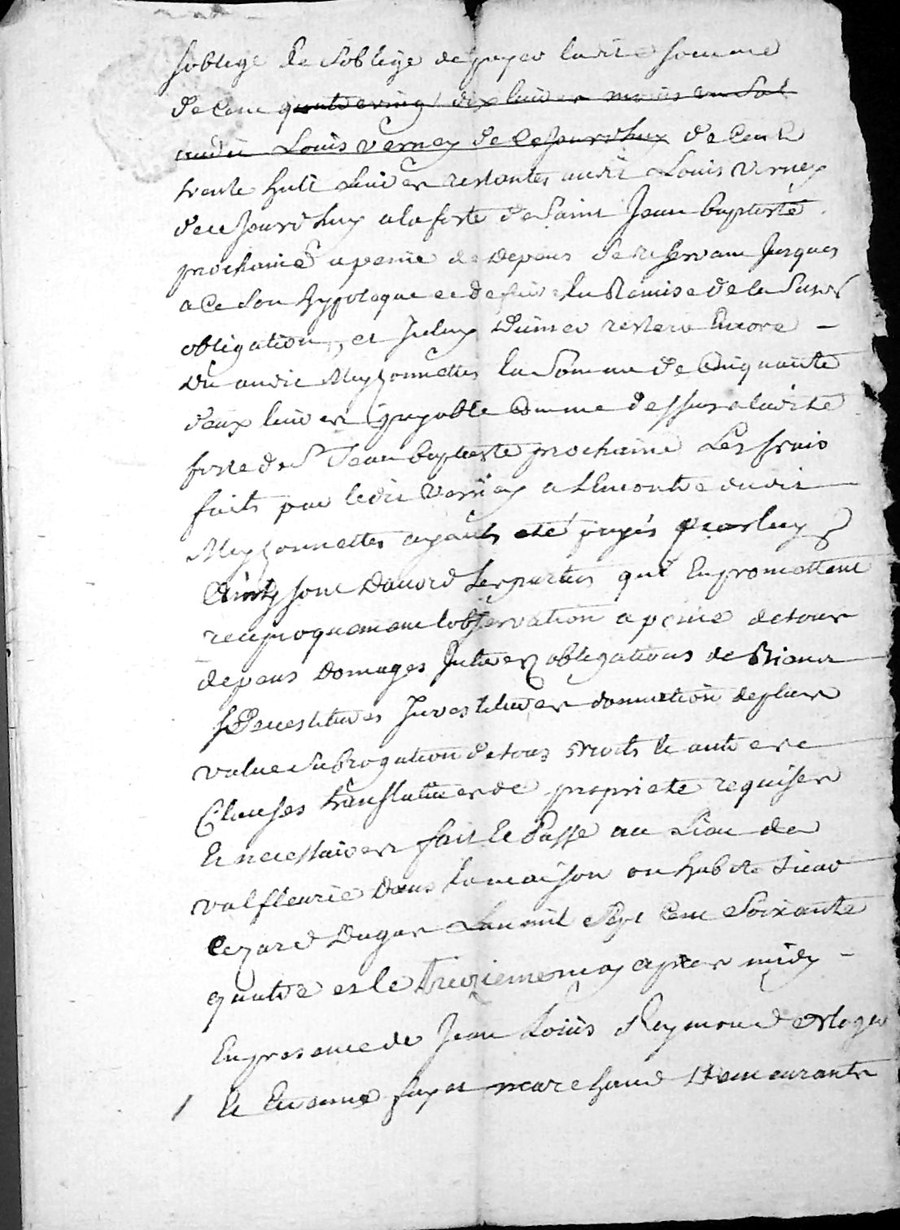 soblige & soblige de payer ladite somme
de cent quatre vingt dix livres moins un sol
audit Louis Verney de ce jourdhuy de cent
trente huit livres restantes audit Louis Verney
de ce jourdhuy a la feste de Saint Jean Baptiste
prochaine a peine de depens se reservant jusques
a ce son hypoteque et de faire la Remise de la Susd
obligation, et Encore
du audit Meyzonnettes la Somme de Cinquante
deux livres payable comme dessus a ladite
feste de St Jean Baptiste prochaine Les frais
faits par ledit Verney a Lencontre dudit
Meyzonnettes ayants eté payés par luy
Ainsy sont Daccord les parties qui En promettent
reciproquement lobservation a peine de tous
depens Domages Interez obligations de Biens
Devestitures Investitures donnation de plus
value Subrogation de tous droits & autre
Clauses translatives de proprieté requises
& necessaires fait & Passé au Lieu de
valfleurie Dans la maison ou habite Sieur
Dugas Lan mil Sept cent Soixante
quatre et le treizieme may apres midy
En presence de Jean Loüis Raymond
& Etienne fayet marchand Demeurants